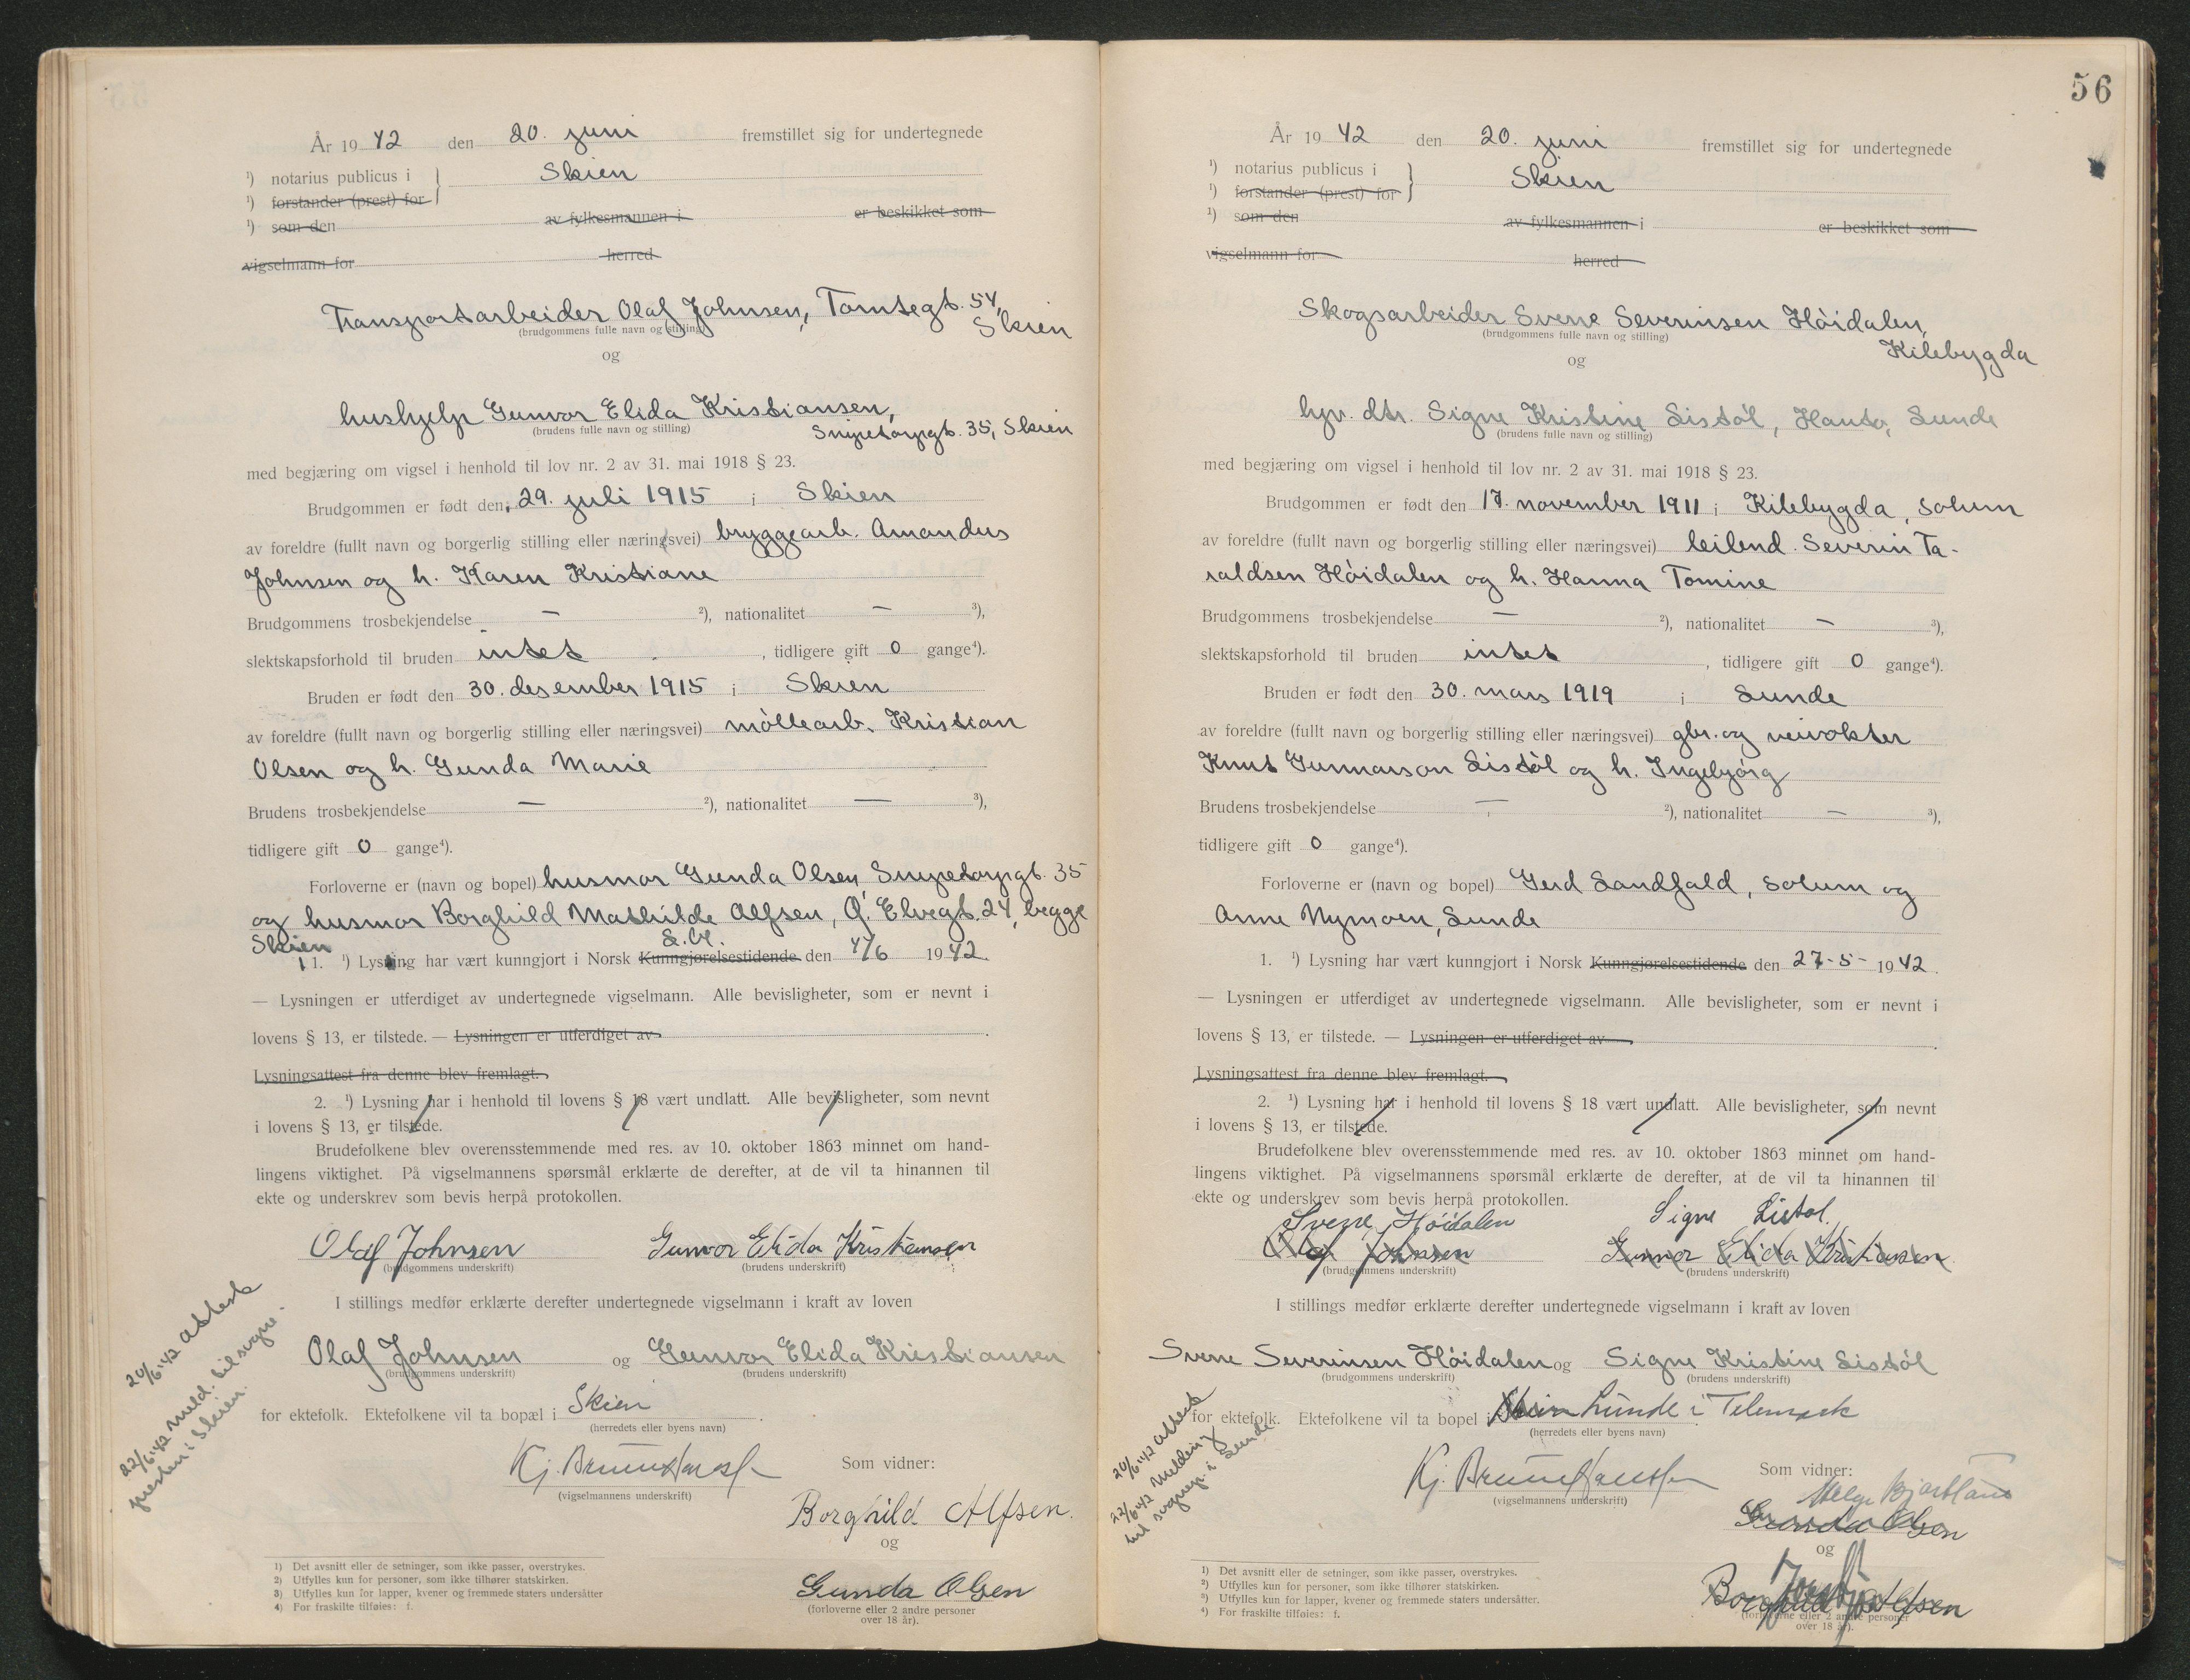 År 1942 den 20. juni fremstillet sig for undertegnede
¹) notarius publicus i } Skien
¹) forstander (prest) for
¹) som den av fylkesmannen i er beskikket som
vigselmann for herred
Transportarbeider Olaf Johnsen, Tomtegt. 54,
Skien
(brudgommens fulle navn og stilling)
og
hushjelp Gunvor Elida Kristiansen,
Snipetorpgt. 35, Skien
(brudens fulle navn og stilling)
med begjæring om vigsel i henhold til lov nr. 2 av 31. mai 1918 § 23.
Brudgommen er født den 29. juli 1915 i Skien
av foreldre (fullt navn og borgerlig stilling eller næringsvei) bryggearb. Amandus
Johnsen og h. Karen Kristiane
Brudgommens trosbekjendelse — ²), nationalitet — ³),
slektskapsforhold til bruden intet, tidligere gift 0 gange⁴).
Bruden er født den 30. desember 1915 i Skien
av foreldre (fullt navn og borgerlig stilling eller næringsvei) möllearb. Kristian
Olsen og h. Gunda Marie
Brudens trosbekjendelse — ²), nationalitet — ³),
tidligere gift 0 gange⁴).
Forloverne er (navn og bopel) husmor Gunda Olsen, Snipetorpgt. 35
og husmor Borghild Mathilde Alfsen, Ø. Elvegt. 24, begge
Skien
1. ¹) Lysning har vært kunngjort i Norsk Kunngjørelsestidende den 4/6 1942
— Lysningen er utferdiget av undertegnede vigselmann. Alle bevisligheter, som er nevnt i
lovens § 13, er tilstede. — Lysningen er utferdiget av .
Lysningsattest fra denne blev fremlagt.
2. ¹) Lysning har i henhold til lovens § 18 vært undlatt. Alle bevisligheter, som nevnt
i lovens § 13, er tilstede.
Brudefolkene blev overensstemmende med res. av 10. oktober 1863 minnet om hand-
lingens viktighet. På vigselmannens spørsmål erklærte de derefter, at de vil ta hinannen til
ekte og underskrev som bevis herpå protokollen.
Olaf Johnsen Gunvor Elida Kristiansen
(brudgommens underskrift) (brudens underskrift)
I stillings medfør erklærte derefter undertegnede vigselmann i kraft av loven
Olaf Johnsen og Gunvor Elida Kristiansen
(brudgommens underskrift) (brudens underskrift)
for ektefolk. Ektefolkene vil ta bopæl i Skien .
(herredets eller byens navn)
20/6 42 attest
22/6 42 meld. til sogne-
presten i Skien.
Som vidner:
(vigselmannens underskrift)
Borghild Alfsen.
og
Gunda Olsen
(forloverne eller 2 andre personer
over 18 år).
1) Det avsnitt eller de setninger, som ikke passer, overstrykes.
2) Utfylles kun for personer, som ikke tilhører statskirken.
3) Utfylles kun for lapper, kvener og fremmede staters undersåtter
4) For fraskilte tilføies: f.
56
År 1942 den 20. juni fremstillet sig for undertegnede
¹) notarius publicus i } Skien
¹) forstander (prest) for
¹) som den av fylkesmannen i er beskikket som
vigselmann for herred
Skogsarbeider Sverre Severinsen Höidalen,
Kilebygda
(brudgommens fulle navn og stilling)
og
hjv. dtr. Signe Kristine Listöl, Hauto, Lunde
(brudens fulle navn og stilling)
med begjæring om vigsel i henhold til lov nr. 2 av 31. mai 1918 § 23.
Brudgommen er født den 17. november 1911 i Kilebygda, Solum
av foreldre (fullt navn og borgerlig stilling eller næringsvei) leilend. Severin Ta-
raldsen Höidalen og h. Hanna Tomine
Brudgommens trosbekjendelse — ²), nationalitet — ³),
slektskapsforhold til bruden intet, tidligere gift 0 gange⁴).
Bruden er født den 30. mars 1919 i Lunde
av foreldre (fullt navn og borgerlig stilling eller næringsvei) gbr. og veivokter
Knut Gunnarson Listöl og h. Ingebjörg
Brudens trosbekjendelse — ²), nationalitet — ³),
tidligere gift 0 gange⁴).
Forloverne er (navn og bopel) Gerd Sandfald, Solum og
Anne Nymoen, Lunde
1. ¹) Lysning har vært kunngjort i Norsk Kunngjørelsestidende den 27-5- 1942.
— Lysningen er utferdiget av undertegnede vigselmann. Alle bevisligheter, som er nevnt i
lovens § 13, er tilstede. — Lysningen er utferdiget av .
Lysningsattest fra denne blev fremlagt.
2. ¹) Lysning har i henhold til lovens § 18 vært undlatt. Alle bevisligheter, som nevnt
i lovens § 13, er tilstede.
Brudefolkene blev overensstemmende med res. av 10. oktober 1863 minnet om hand-
lingens viktighet. På vigselmannens spørsmål erklærte de derefter, at de vil ta hinannen til
ekte og underskrev som bevis herpå protokollen.
Sverre Höidalen Signe Listol.
Olaf Johnsen Gunvor Elida Kristiansen
(brudgommens underskrift) (brudens underskrift)
I stillings medfør erklærte derefter undertegnede vigselmann i kraft av loven
Sverre Severinsen Höidalen og Signe Kristine Listöl
(brudgommens underskrift) (brudens underskrift)
for ektefolk. Ektefolkene vil ta bopel i Skien Lunde i Telemark
(herredets eller byens navn)
20/6 42 attest
22/6 42 melding
til sognep. i Lunde
Som vidner:
(vigselmannens underskrift)
Gunda Olsen
og
Borghild Alfsen
(forloverne eller 2 andre personer
over 18 år).
¹) Det avsnitt eller de setninger, som ikke passer, overstrykes.
²) Utfylles kun for personer, som ikke tilhører statskirken.
³) Utfylles kun for lapper, kvener og fremmede staters undersåtter.
⁴) For fraskilte tilføies: f.